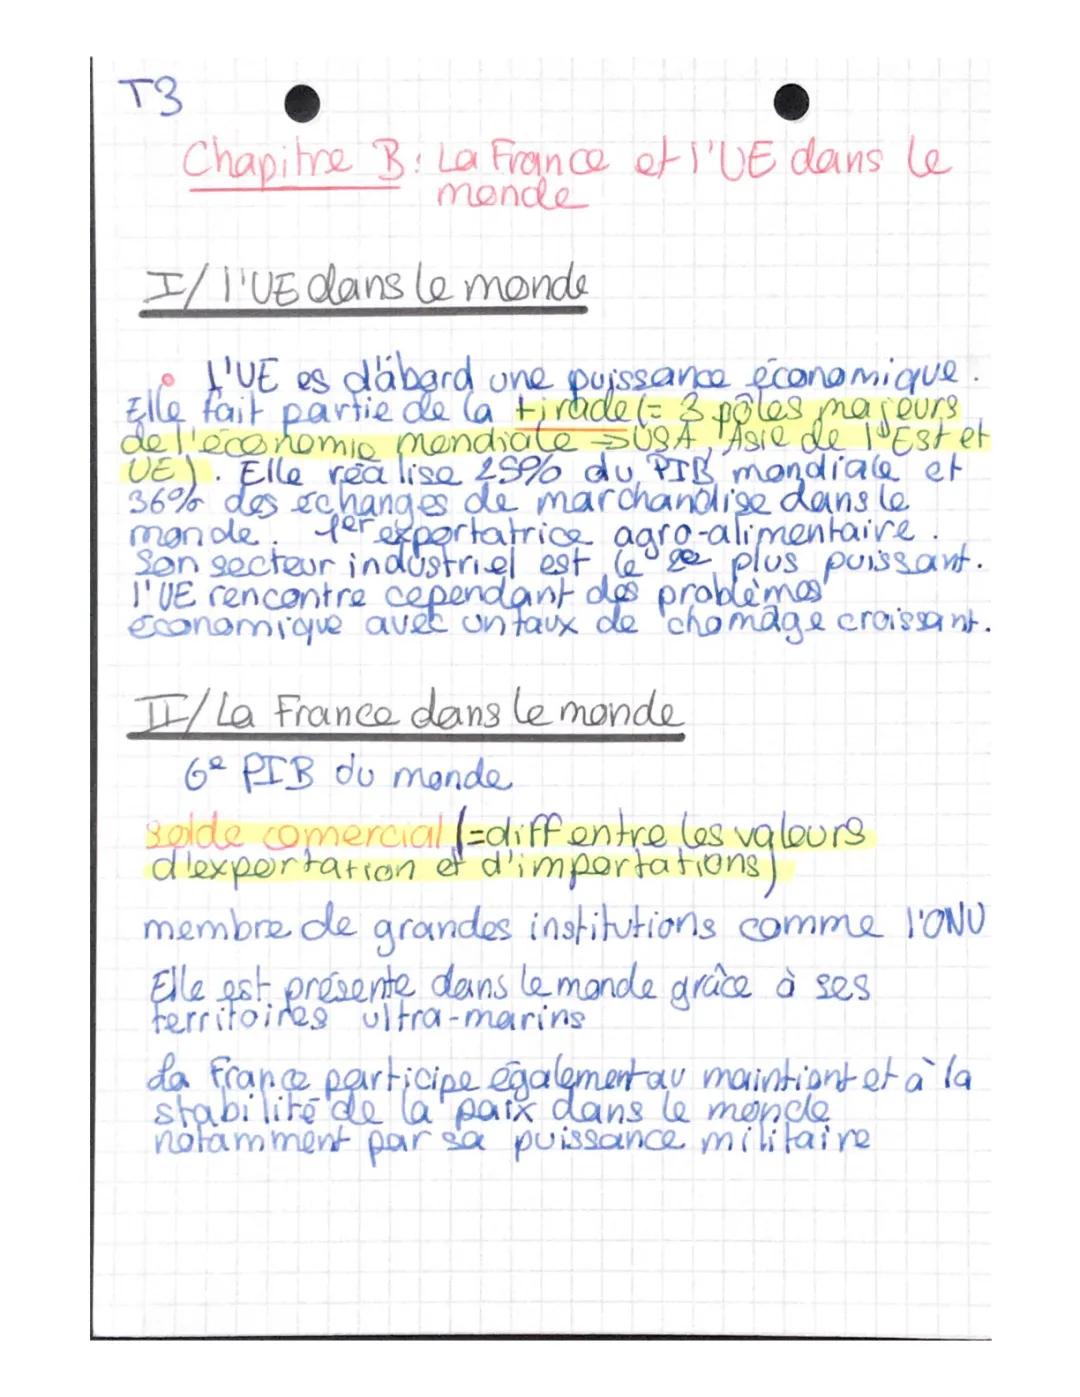 T3
Chapitre B: La France et l'UE dans le
monde
I/ l'UE dans le monde
L'UE es d'abord une puissance économique.
Elle fait partie de la tirade (= 3 pôles majeurs
de l'économie mondiale ⇒ USA, Asie de l'Est et
UE). Elle réalise 25% du PIB mondiale et
36% des échanges de marchandise dans le
monde. 1er exportatrice agro-alimentaire.
Son secteur industriel est le 2e plus puissant.
l'UE rencontre cependant des problèmes
économique avec un taux de chomâge croissant.
II/ La France dans le monde
6e PIB du monde
solde comercial (=diff entre les valeurs
d'exportation et d'importations)
membre de grandes institutions comme l'ONU
Elle est présente dans le monde grâce à ses
territoires ultra-marins
La France participe également au maintient et à la
stabilité de la paix dans le monde
notamment par sa puissance militaire